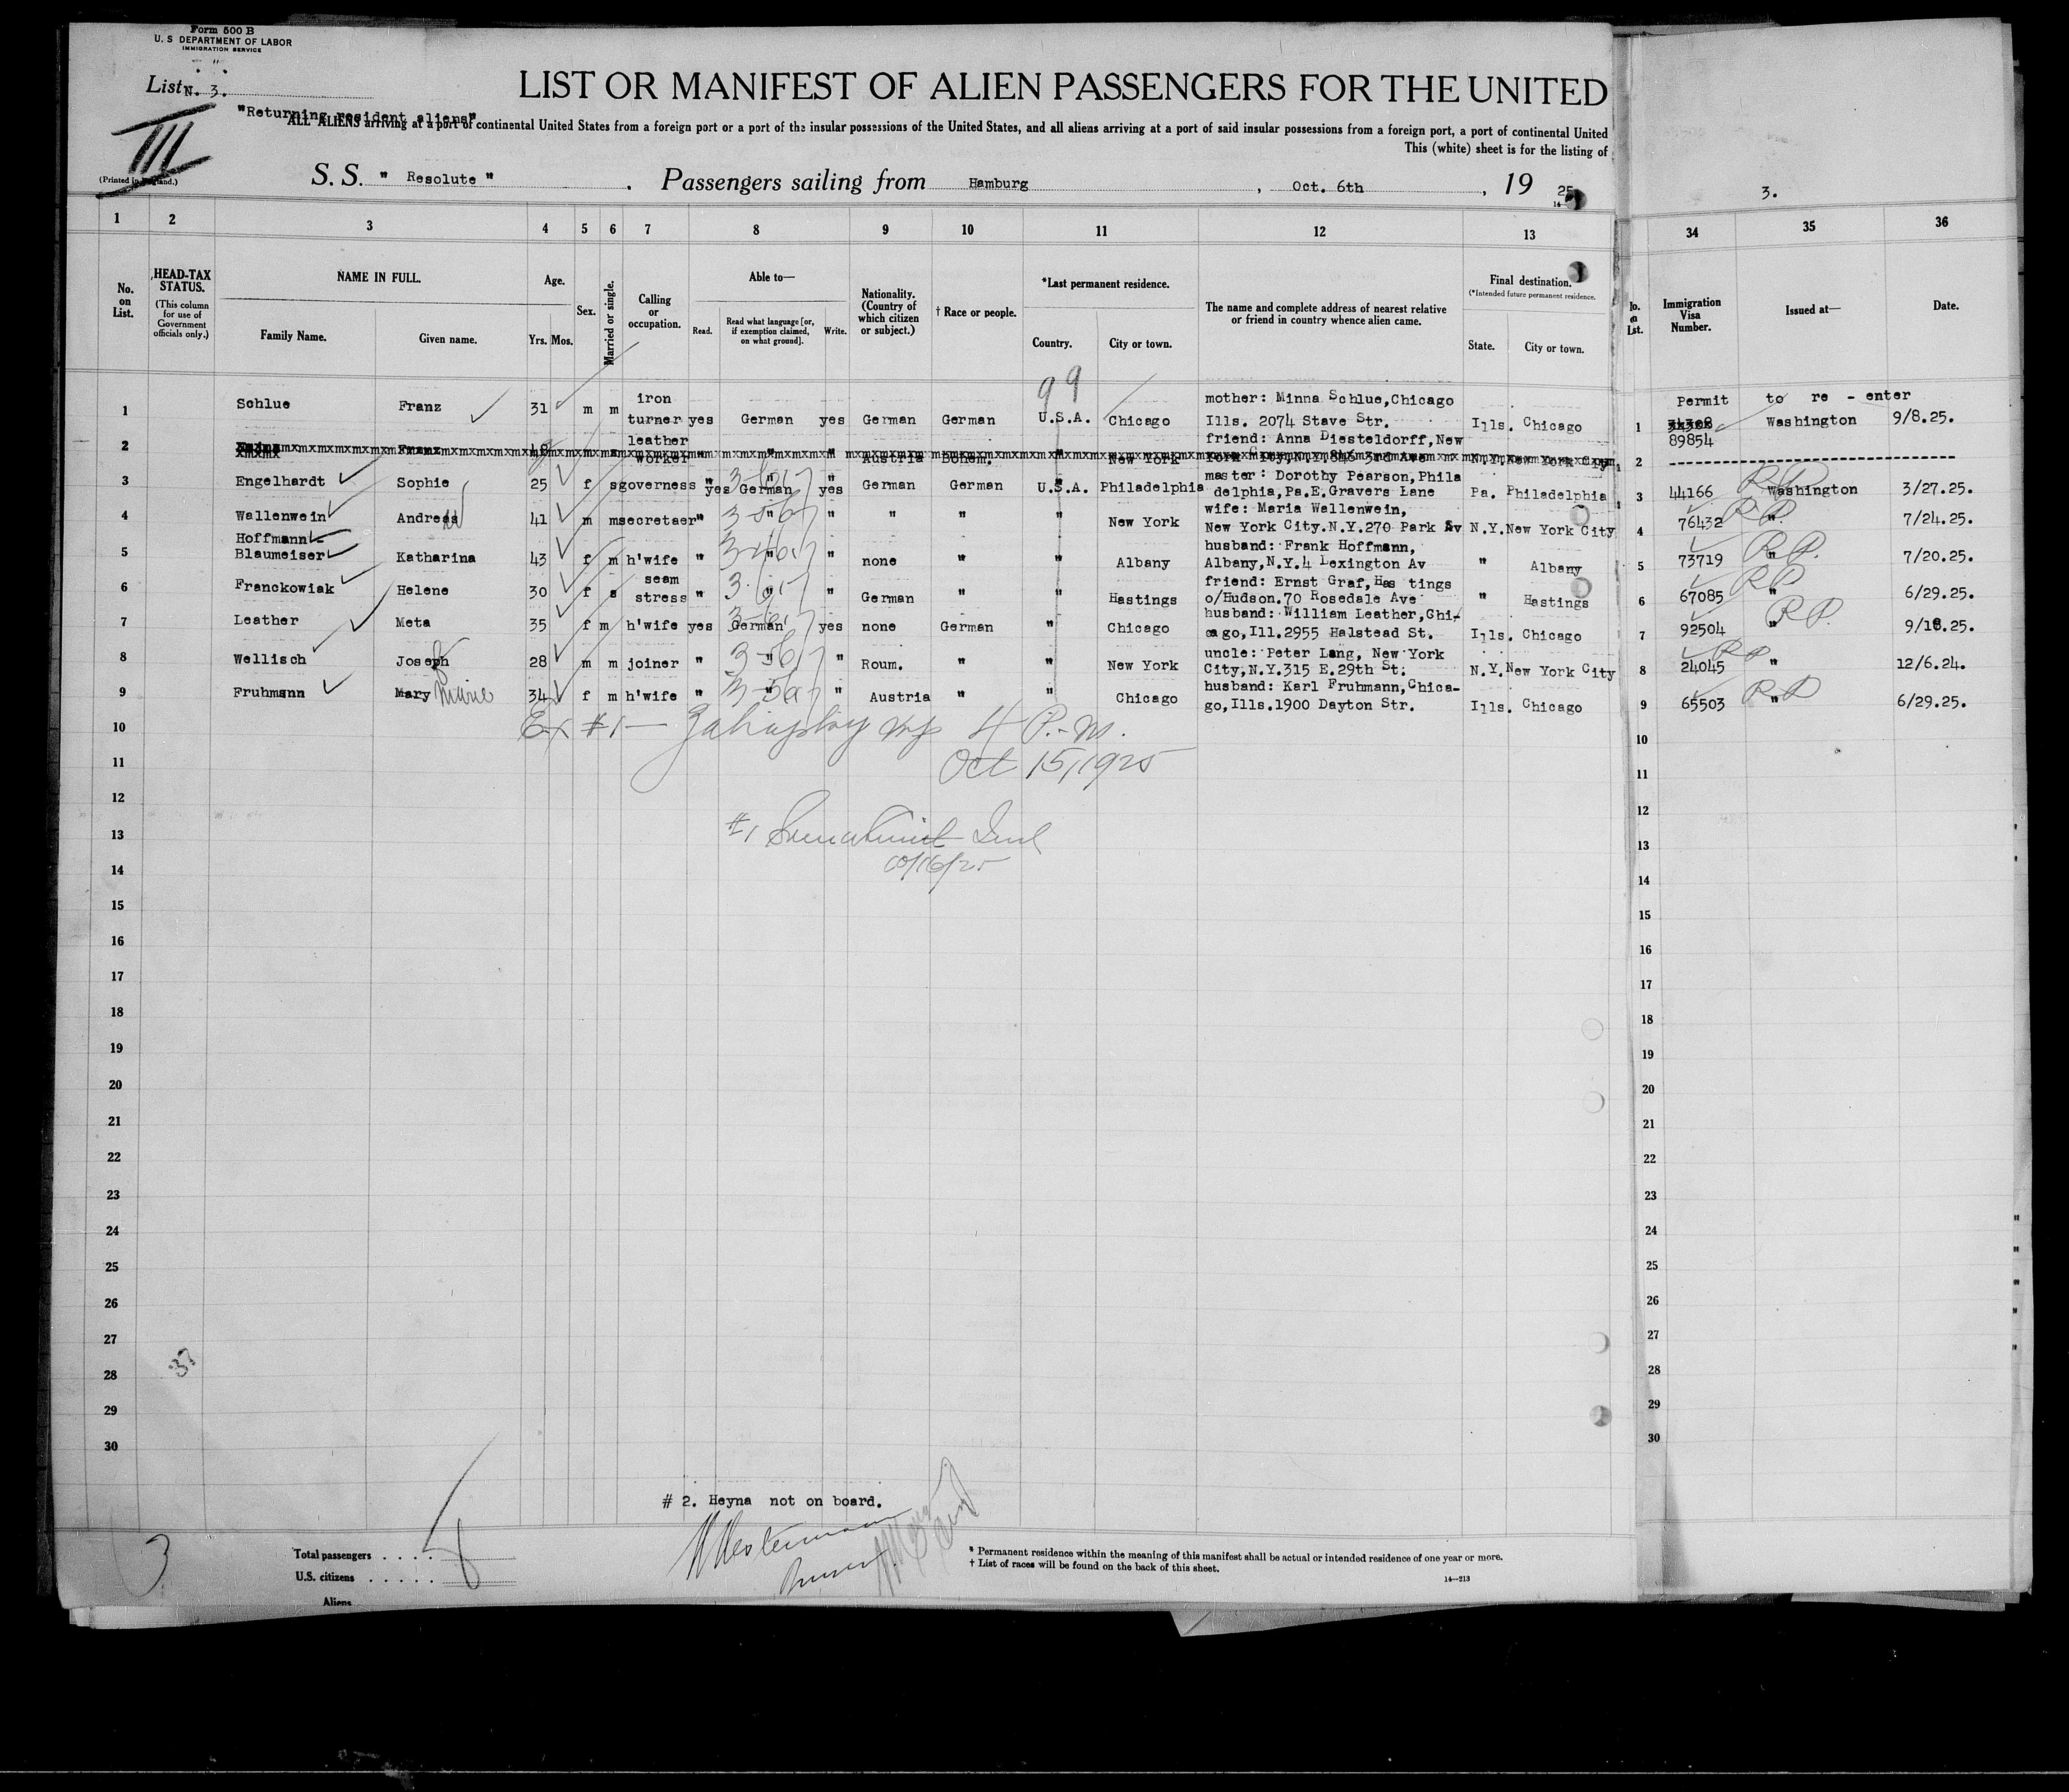 Form 500 B
U. S DEPARTMENT OF LABOR
IMMIGRATION SERVICE
List N. 3.
III
(Printed in England.)
LIST OR MANIFEST OF ALIEN PASSENGERS FOR THE UNITED
"Returning resident aliens"
ALL ALIENS arriving at a port of continental United States from a foreign port or a port of the insular possessions of the United States, and all aliens arriving at a port of said insular possessions from a foreign port, a port of continental United
This (white) sheet is for the listing of
S. S. " Resolute " . Passengers sailing from Hamburg , Oct. 6th , 19 25
3.
1 2 3 4 5 6 7 8 9 10 11 12 13 34 35 36
No. on List.
HEAD-TAX STATUS.
(This column for use of Government officials only.)
NAME IN FULL.
Family Name. Given name.
Age.
Yrs. Mos.
Sex.
Married or single.
Calling or occupation.
Able to—
Read. Read what language [or, if exemption claimed, on what ground]. Write.
Nationality. (Country of which citizen or subject.)
† Race or people.
*Last permanent residence.
Country. City or town.
The name and complete address of nearest relative or friend in country whence alien came.
Final destination.
(*Intended future permanent residence.
State. City or town.
Immigration Visa Number.
Issued at—
Date.
99
Permit to re - enter
1 Schlue Franz 31 m m iron turner yes German yes German German U.S.A. Chicago mother: Minna Schlue,Chicago Ills. 2074 Stave Str. Ills. Chicago 1 89854 Washington 9/8.25.
2 Franz leather worker " " Austria Bohem. " New York friend: Anna Diesteldorff,New York City,N.Y.846 3rd Ave N.Y. New York City 2
3 Engelhardt Sophie 25 f s governess " yes German " yes German German U.S.A. Philadelphia master: Dorothy Pearson,Phila delphia,Pa.E.Gravers Lane Pa. Philadelphia 3 44166 Washington 3/27.25.
4 Wallenwein Andreas 41 m m secretaer " " " " " " New York wife: Maria Wallenwein, New York City.N.Y.270 Park Av N.Y. New York City 4 76432 " 7/24.25.
5 Hoffmann Blaumeiser Katharina 43 f m h'wife " " " none " " Albany husband: Frank Hoffmann, Albany,N.Y.4 Lexington Av " Albany 5 73719 " 7/20.25.
6 Franckowiak Helene 30 f s seam stress " " " German " " Hastings friend: Ernst Graf,Has tings o/Hudson.70 Rosedale Ave " Hastings 6 67085 " 6/29.25.
7 Leather Meta 35 f m h'wife yes German yes none German " Chicago husband: William Leather,Chi- cago,Ill.2955 Halstead St. Ills. Chicago 7 92504 " 9/18.25.
8 Wellisch Joseph 28 m m joiner " " " Roum. " " New York uncle: Peter Lang, New York City,N.Y.315 E.29th St: N.Y. New York City 8 24045 " 12/6.24.
9 Fruhmann Mary Marie 34 f m h'wife " " " Austria " " Chicago husband: Karl Fruhmann,Chica- go,Ills.1900 Dayton Str. Ills. Chicago 9 65503 " 6/29.25.
10 Ex #1— 4 P.M. 10
11 Oct 15, 1925 11
12 12
13 #1 13
14 10/16/25 14
15 15
16 16
17 17
18 18
19 19
20 20
21 21
22 22
23 23
24 24
25 25
26 26
27 27
28 37 28
29 29
30 30
# 2. Heyna not on board.
3
Total passengers . . . .
U.S. citizens . . . . .
Aliens
* Permanent residence within the meaning of this manifest shall be actual or intended residence of one year or more.
† List of races will be found on the back of this sheet.
14—213